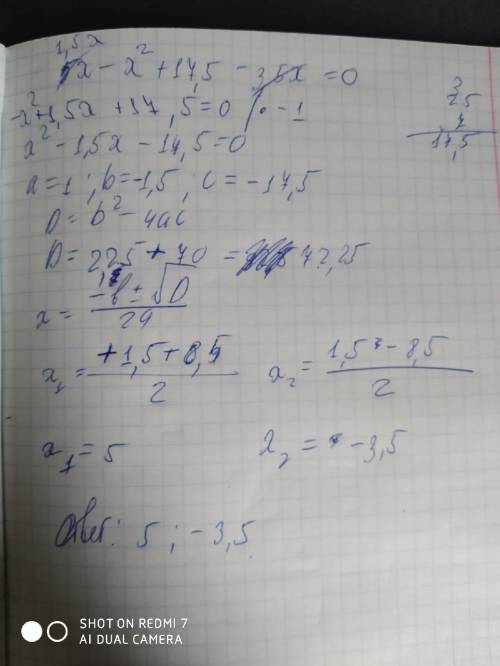 1,5x
5x - x² + 17,5 - 3,5x = 0
-x² + 1,5x + 17,5 = 0 | · -1
x² - 1,5x - 17,5 = 0
a = 1 ; b = -1,5 , c = -17,5
D = b² - 4ac
D = 2,25 + 70 = 72,25
x = -b ± √D / 2a
x₁ = +1,5 + 8,5 / 2
x₂ = 1,5 - 8,5 / 2
x₁ = 5
x₂ = -3,5
Ответ: 5 ; -3,5.
3
25
17,5
SHOT ON REDMI 7
AI DUAL CAMERA